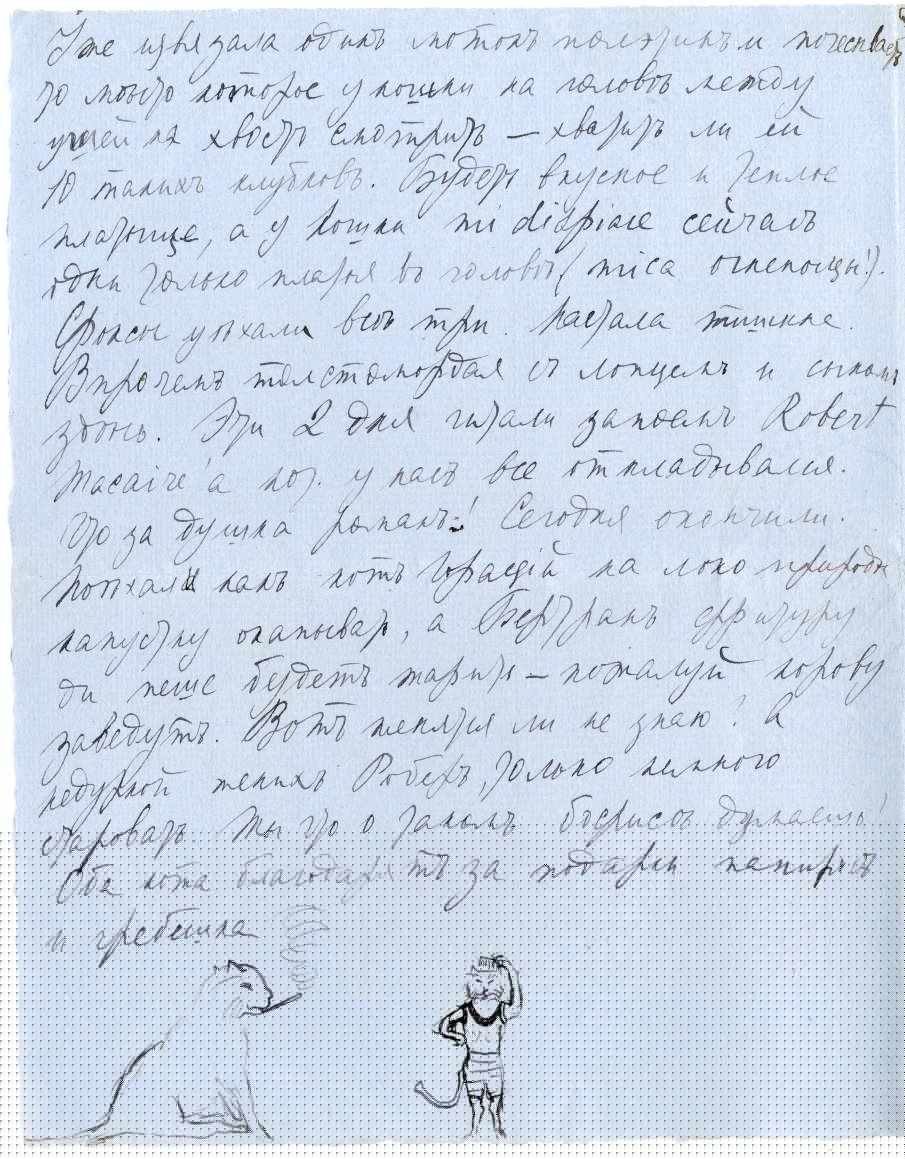 Уже извязала одинъ мотокъ и почесывает
то мѣсто которое у кошки на головѣ между
ушей на хвостъ смотритъ — хватитъ ли ей
10 такихъ клубковъ. Будетъ вкусное и теплое
платьице, а у кошки mi dispiace сейчасъ
одни только платья въ головѣ (mica !).
Фоксы уѣхали всѣ три. Настала тишина.
Впрочемъ толстомордая съ и сыномъ
здѣсь. Эти 2 дня читали запоемъ Robert
Macaire'а кот. у насъ все откладывался.
Что за душка романъ! Сегодня окончили.
Поѣхали какъ котъ Горацій на лоно природы
капустку окапывать, а Бертранъ фритуру
ди пеше будетъ жарить — пожалуй корову
заведутъ. Вотъ женятся ли не знаю! А
недурной женихъ Роберъ, только немного
староватъ. Ты что о такомъ думаешь!
Оба кота благодарятъ за подарки папиросъ
и гребешка